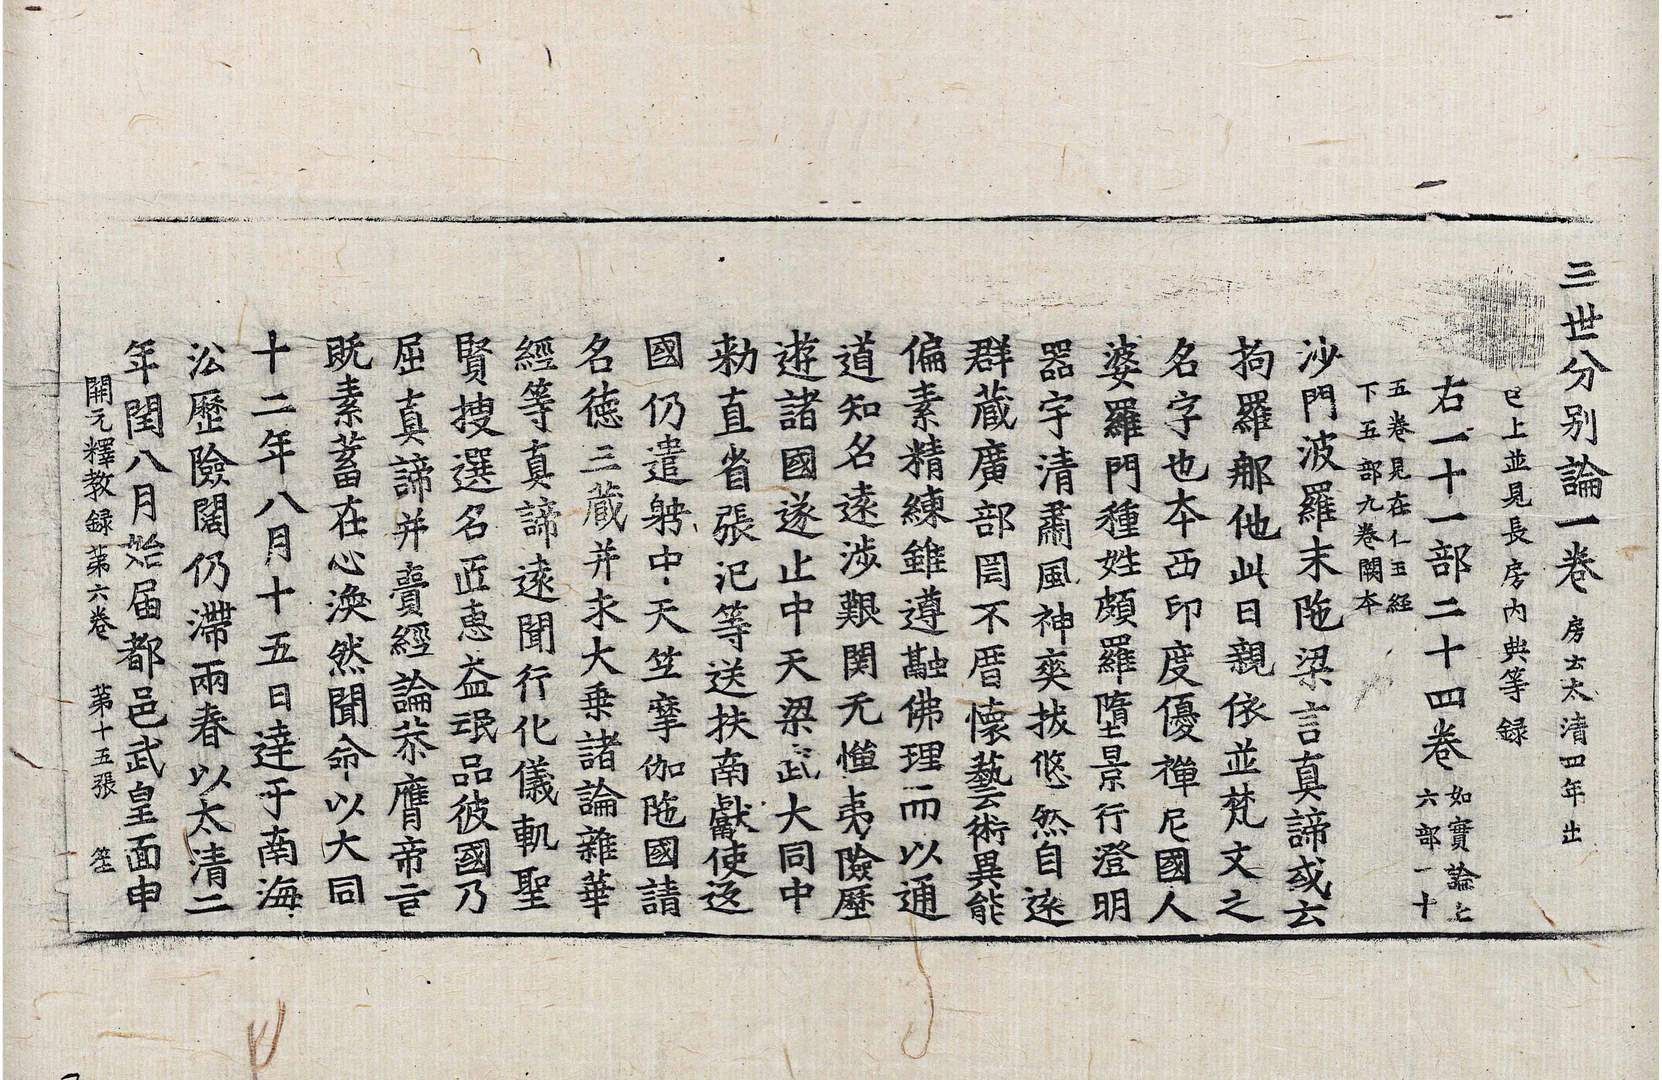 三世分別論一卷 房云太清四年出
已上並見長房內典等録
右一十一部二十四卷 如實論上六部一十
五卷見在仁王經下五部九卷闕本
沙門波羅末陁梁言真諦或云
拘羅那他此曰親依並梵文之
名字也本西印度優禪尼國人
婆羅門種姓頗羅墮景行澄明
器宇清肅風神爽拔悠然自逺
群藏廣部罔不厝懷藝術異能
偏素精練雖遵融佛理而以通
道知名逺涉艱関无憚夷險歷
遊諸國遂止中天梁武大同中
勑直省張汜等送扶南獻使返
國仍遣聘中天竺摩伽陁國請
名德三藏并求大乗諸論雜華
經等真諦逺聞行化儀軌聖
賢搜選名匠惠益珉品彼國乃
屈真諦并賷經論恭膺帝言
既素蓄在心渙然聞命以大同
十二年八月十五日達于南海
㳂歷險闊仍滯兩春以太清二
年閏八月始届都邑武皇面申
開元釋教録第六卷 第十五張 笙